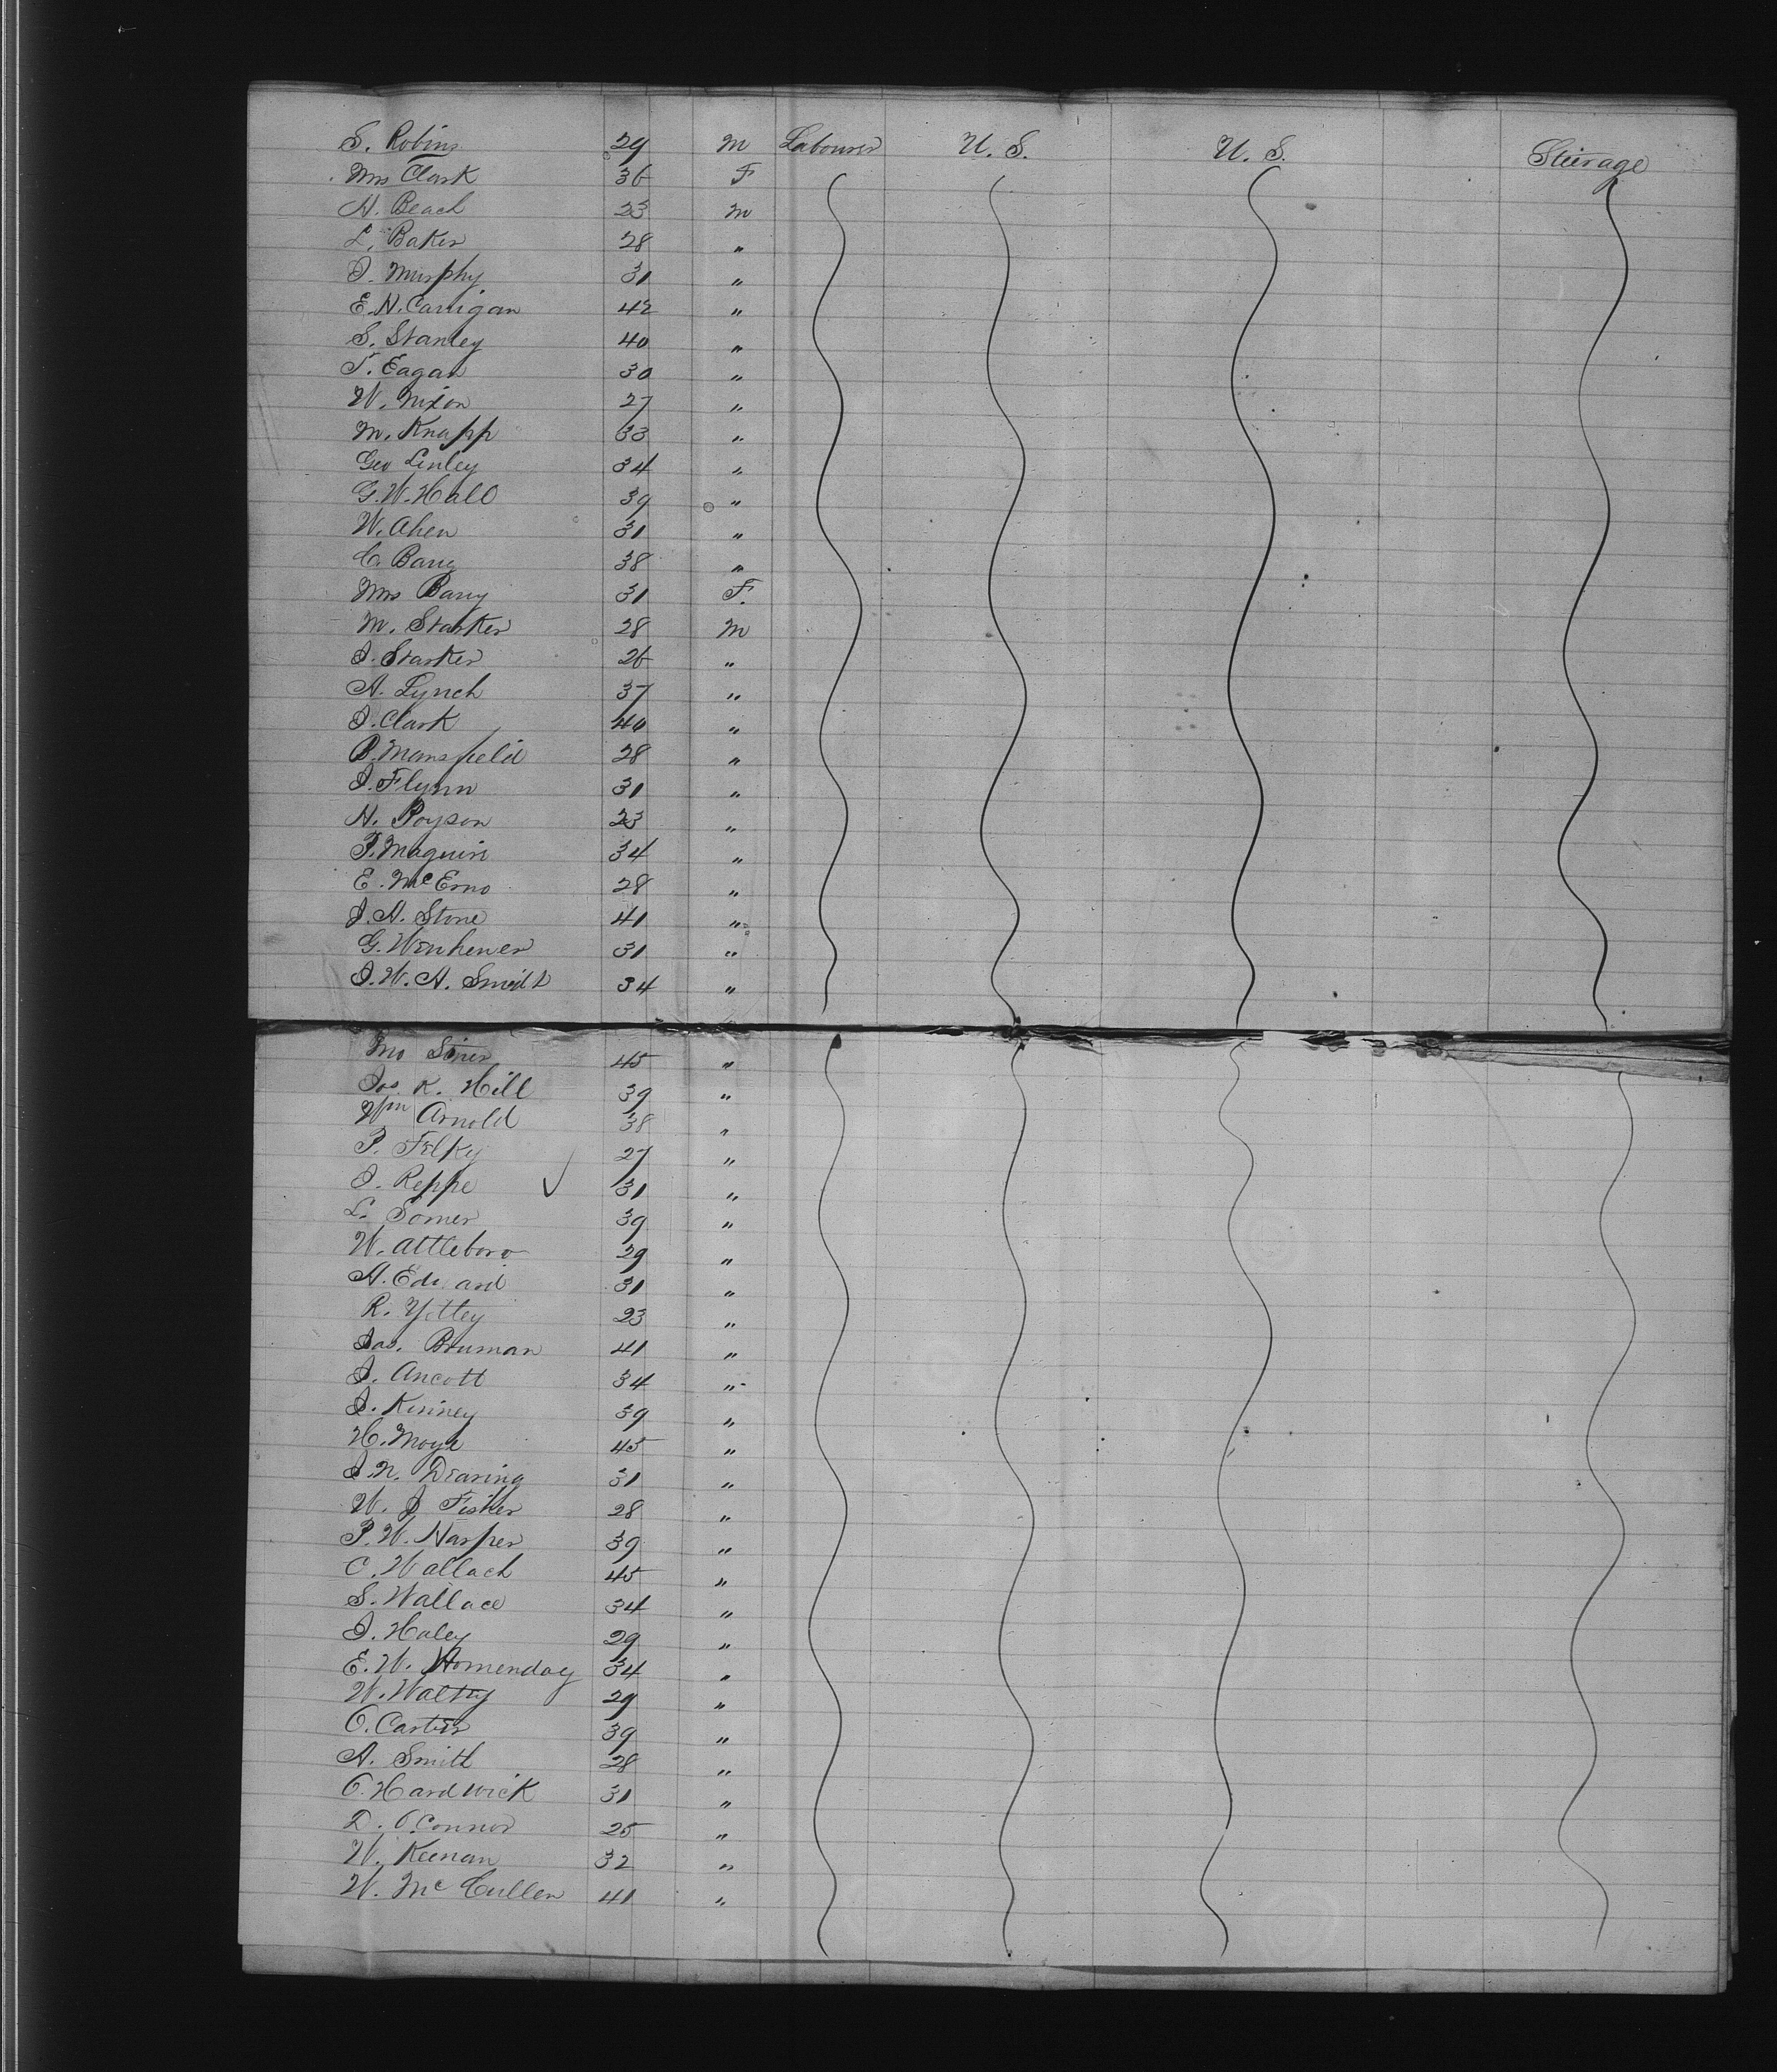 S. Robins 29 M Labourer U. S. U. S. Steerage
Mrs Clark 36 F
H. Beach 23 M
L. Baker 28 "
J. Murphy 31 "
E. H. Carrigan 42 "
S. Stanley 40 "
T. Eagan 30 "
W. Nixon 27 "
M. Knapp 33 "
Geo Linley 34 "
G. W. Hall 39 "
W. Ahen 31 "
C. Barry 38 "
Mrs Barry 31 F.
M. Starker 28 M
J. Starker 26 "
A. Lynch 37 "
J. Clark 40 "
B. Mansfield 28 "
J. Flynn 31 "
H. Poyson 23 "
P. Maguire 34 "
E. McErno 28 "
J. H. Stone 41 "
G. Wenhener 31 "
J. W. H. Smith 34 "
45 "
Jos K. Hill 39 "
Wm Arnold 38 "
P. Felky 27 "
J. Reppe 31 "
L. Somer 39 "
W. Attleboro 29 "
H. Edward 31 "
R. Yetley 23 "
Jas. Bruman 41 "
J. Ancott 34 "
J. Kinney 39 "
H. Moye 45 "
J. N. Dearing 31 "
W. J Fisher 28 "
P. W. Harper 39 "
C. Wallach 45 "
S. Wallace 34 "
J. Haley 29 "
E. W. Homenday 34 "
W. Waltry 29 "
O. Carter 39 "
A. Smith 28 "
O. Hardwick 31 "
D. O'Connor 25 "
W. Keenan 32 "
W. McCullen 41 "